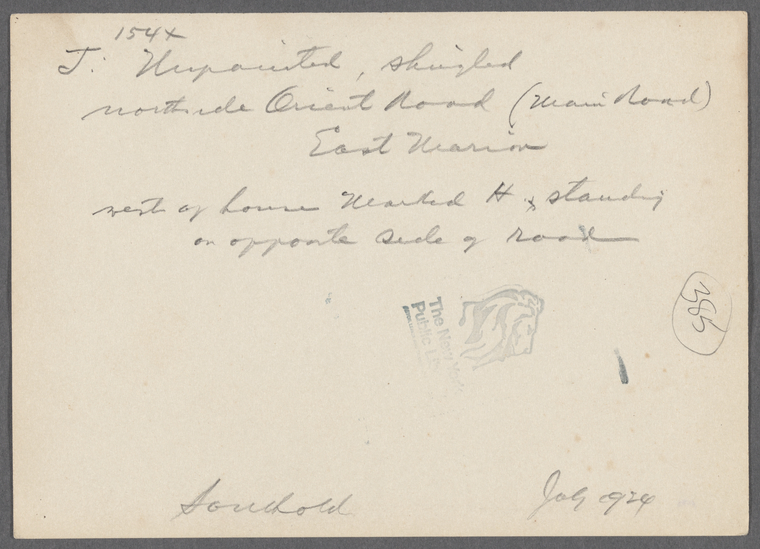 154x
J: Unpainted, shingled
north side Orient Road (Main Road)
East Marion
west of house Marked H & standing
on opposite side of road
386
The New York
Public Li
Southold July 1924